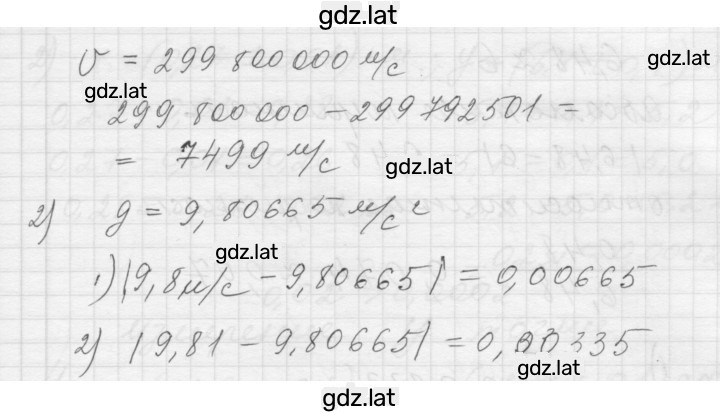 gdz.lat
v = 299 800 000 м/с
gdz.lat
gdz.lat
299 800 000 - 299 792 501 =
= 7499 м/с
gdz.lat
2) g = 9,80665 м/с²
gdz.lat
1) |9,8 м/с - 9,80665| = 0,00665
2) |9,81 - 9,80665| = 0,00335
gdz.lat
gdz.lat